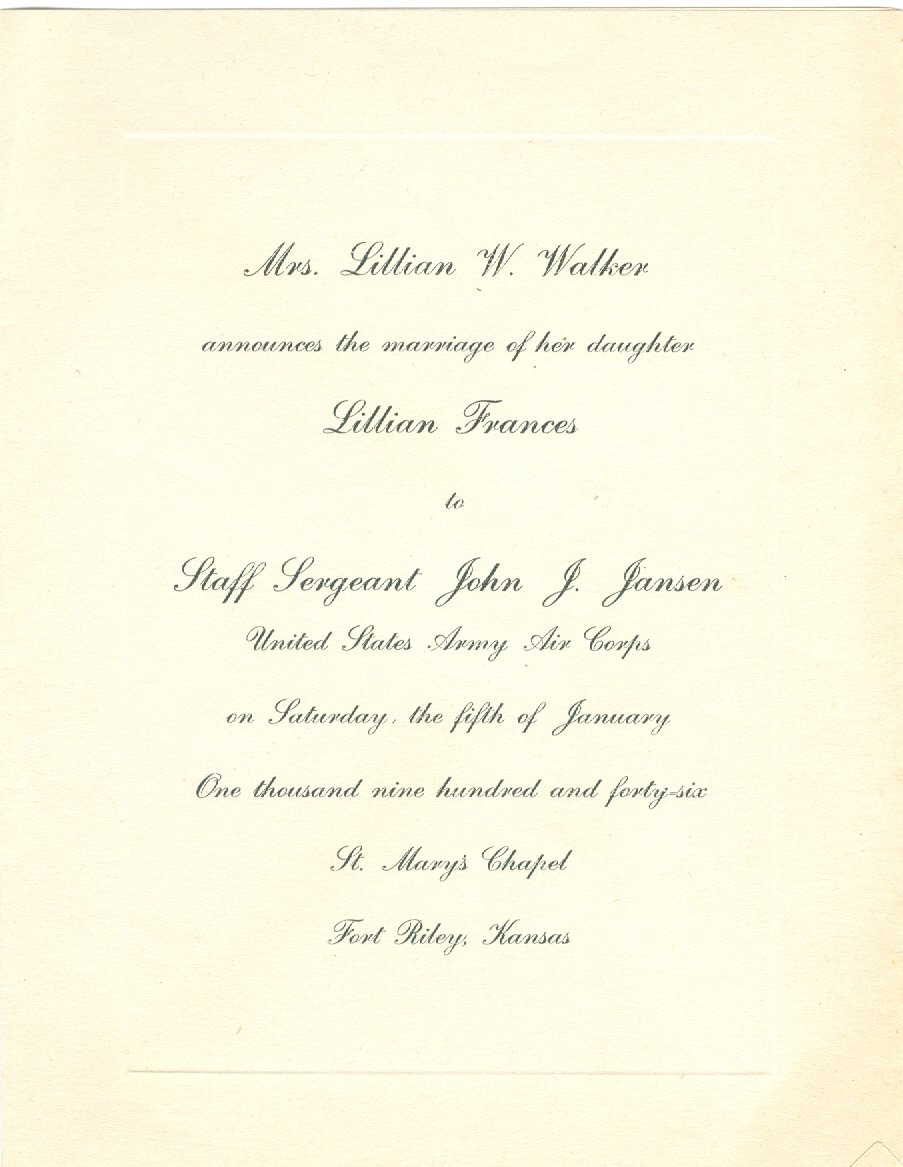 Mrs. Lillian W. Walker
announces the marriage of her daughter
Lillian Frances
to
Staff Sergeant John J. Jansen
United States Army Air Corps
on Saturday, the fifth of January
One thousand nine hundred and forty-six
St. Mary's Chapel
Fort Riley, Kansas